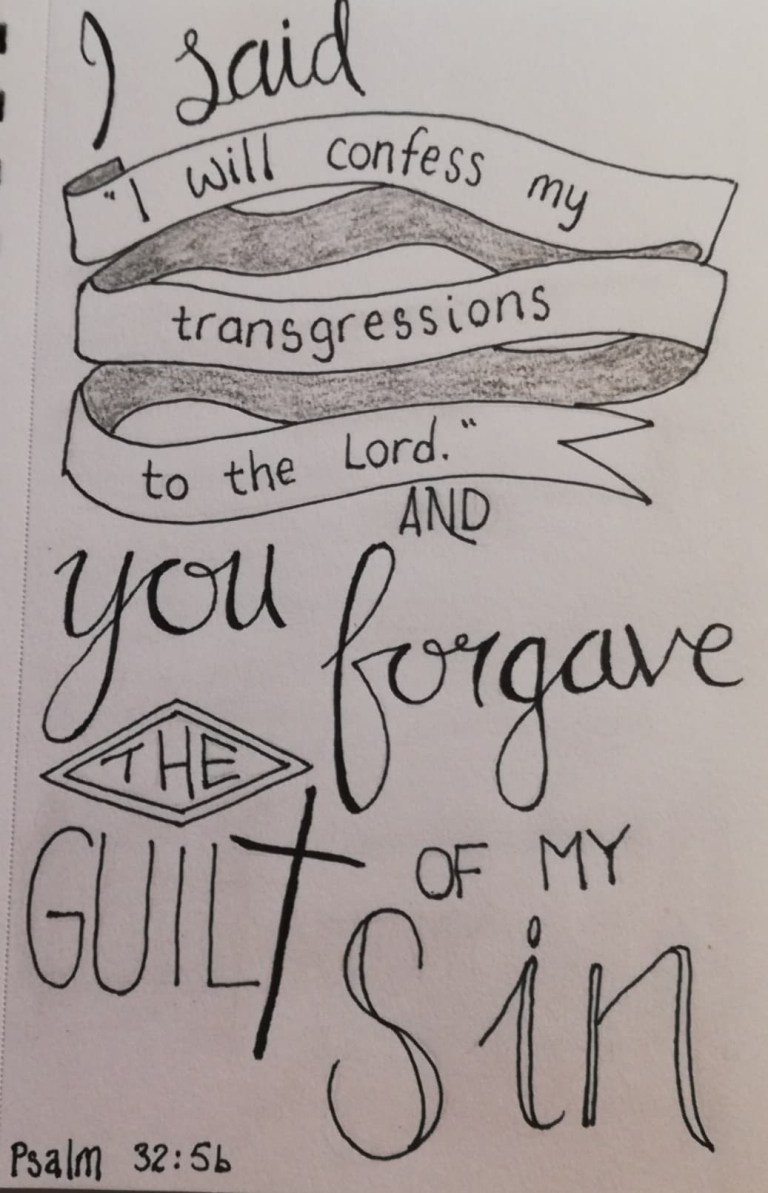 I said
"I will confess my
transgressions
to the Lord."
AND
you forgave
THE
GUILT OF MY
Sin
Psalm 32:5b